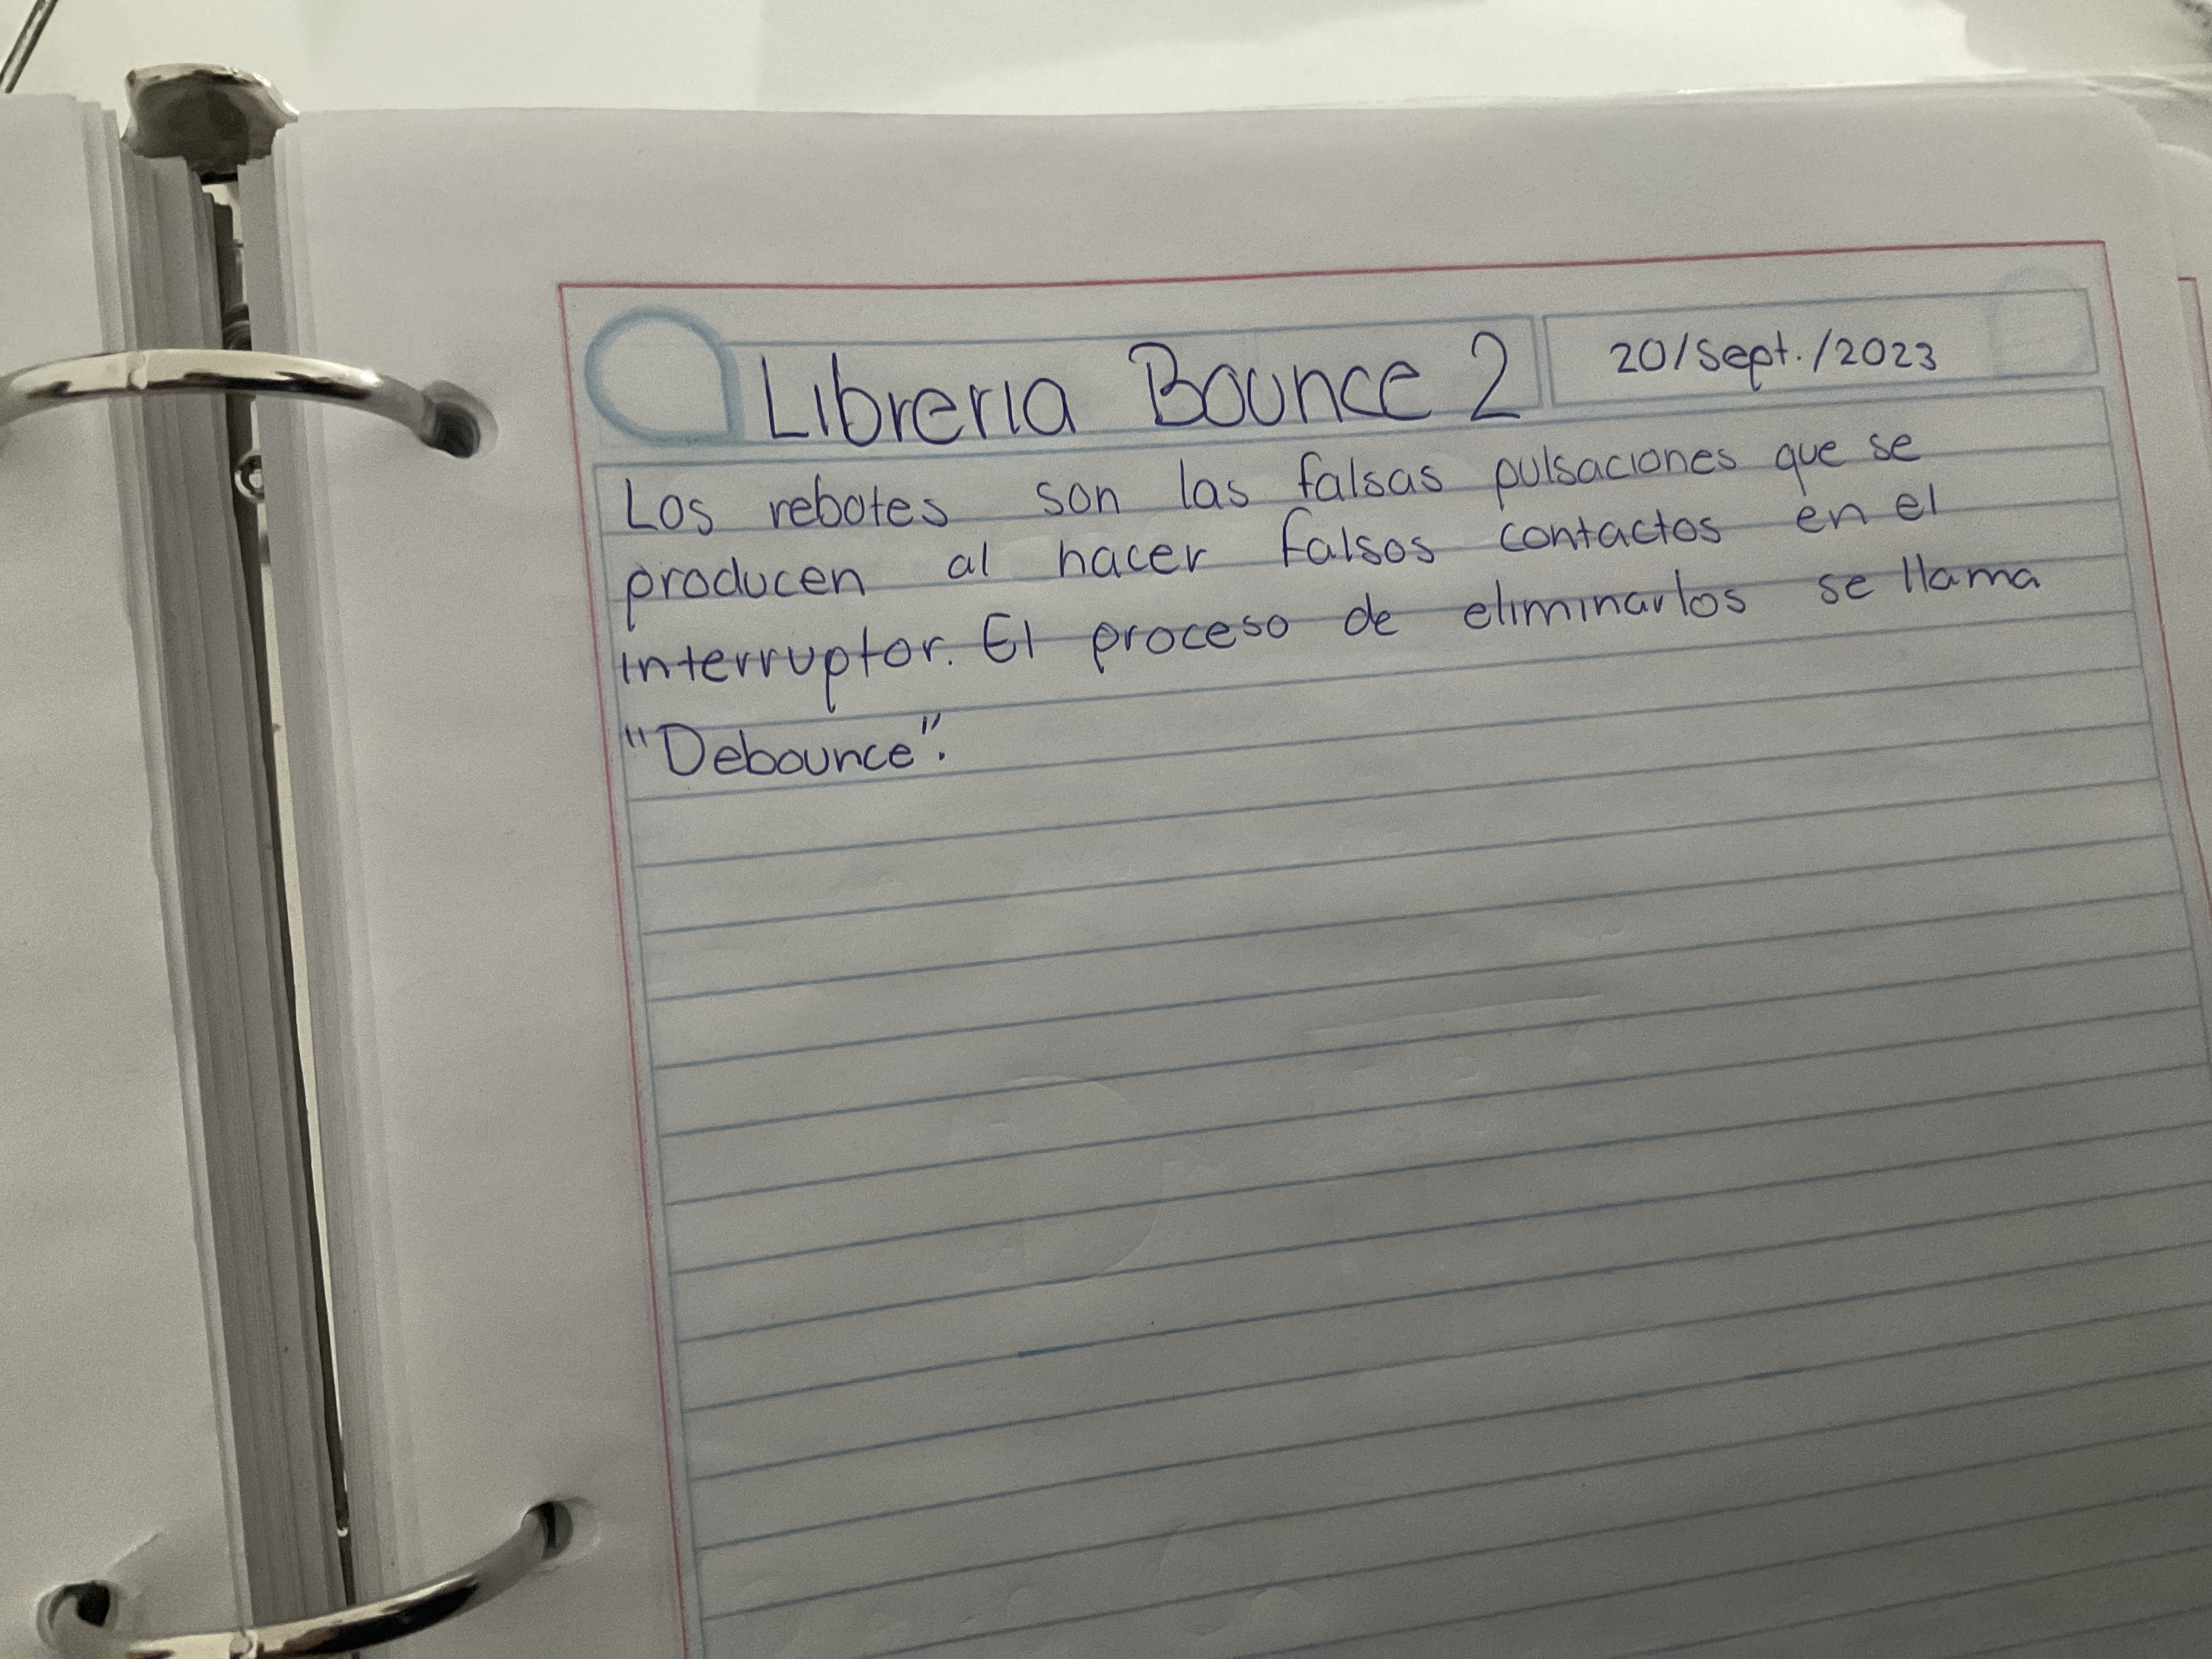 Libreria Bounce 2
20/Sept./2023
Los rebotes son las falsas pulsaciones que se
producen al hacer falsos contactos en el
interruptor. El proceso de eliminarlos se llama
"Debounce".